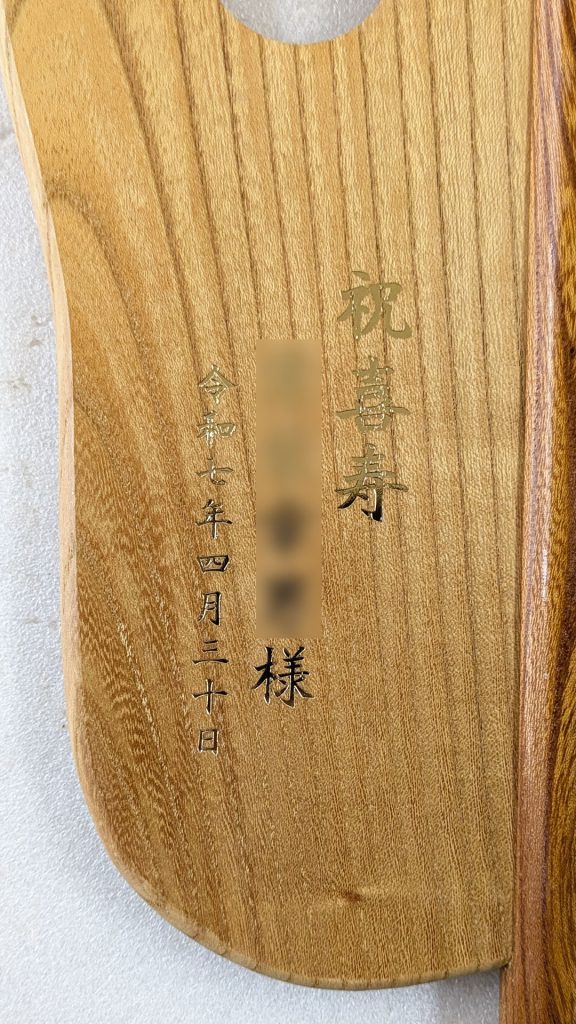 祝喜寿
様
令和七年四月三十日